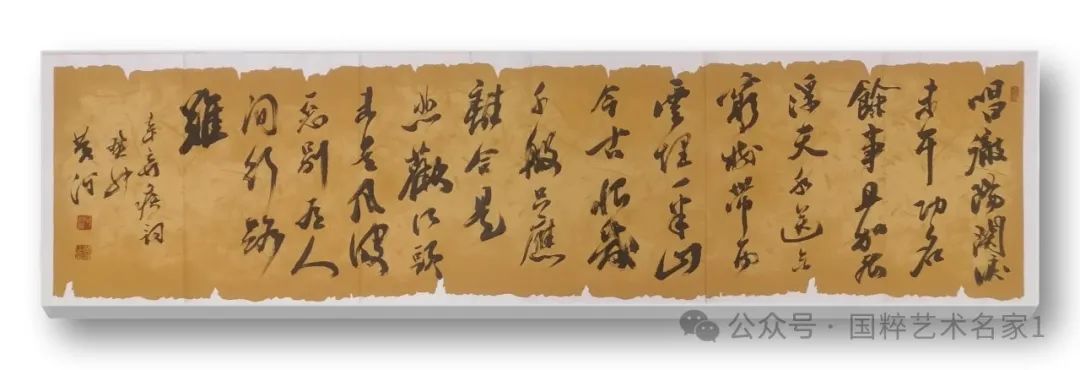 唱徹陽關淚
未干功名
餘事且加餐
浮天水送無
窮樹帶雨
雲埋一半山
今古恨幾
千般只應
離合是
悲歡江頭
未是風波
惡別有人
間行路
難
辛弃疾詞
癸卯
黄河
公众号 · 国粹艺术名家1